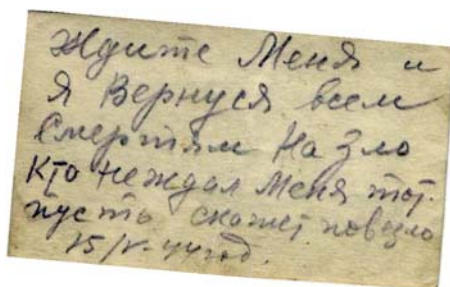 Ждите Меня и
я Вернуся всем
Смертям На Зло
Кто неждал Меня тот.
пусть скажет повезло
15/V-44 год.